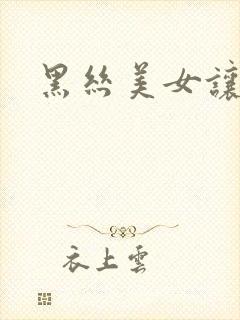 黑丝美女讓
衣上雲